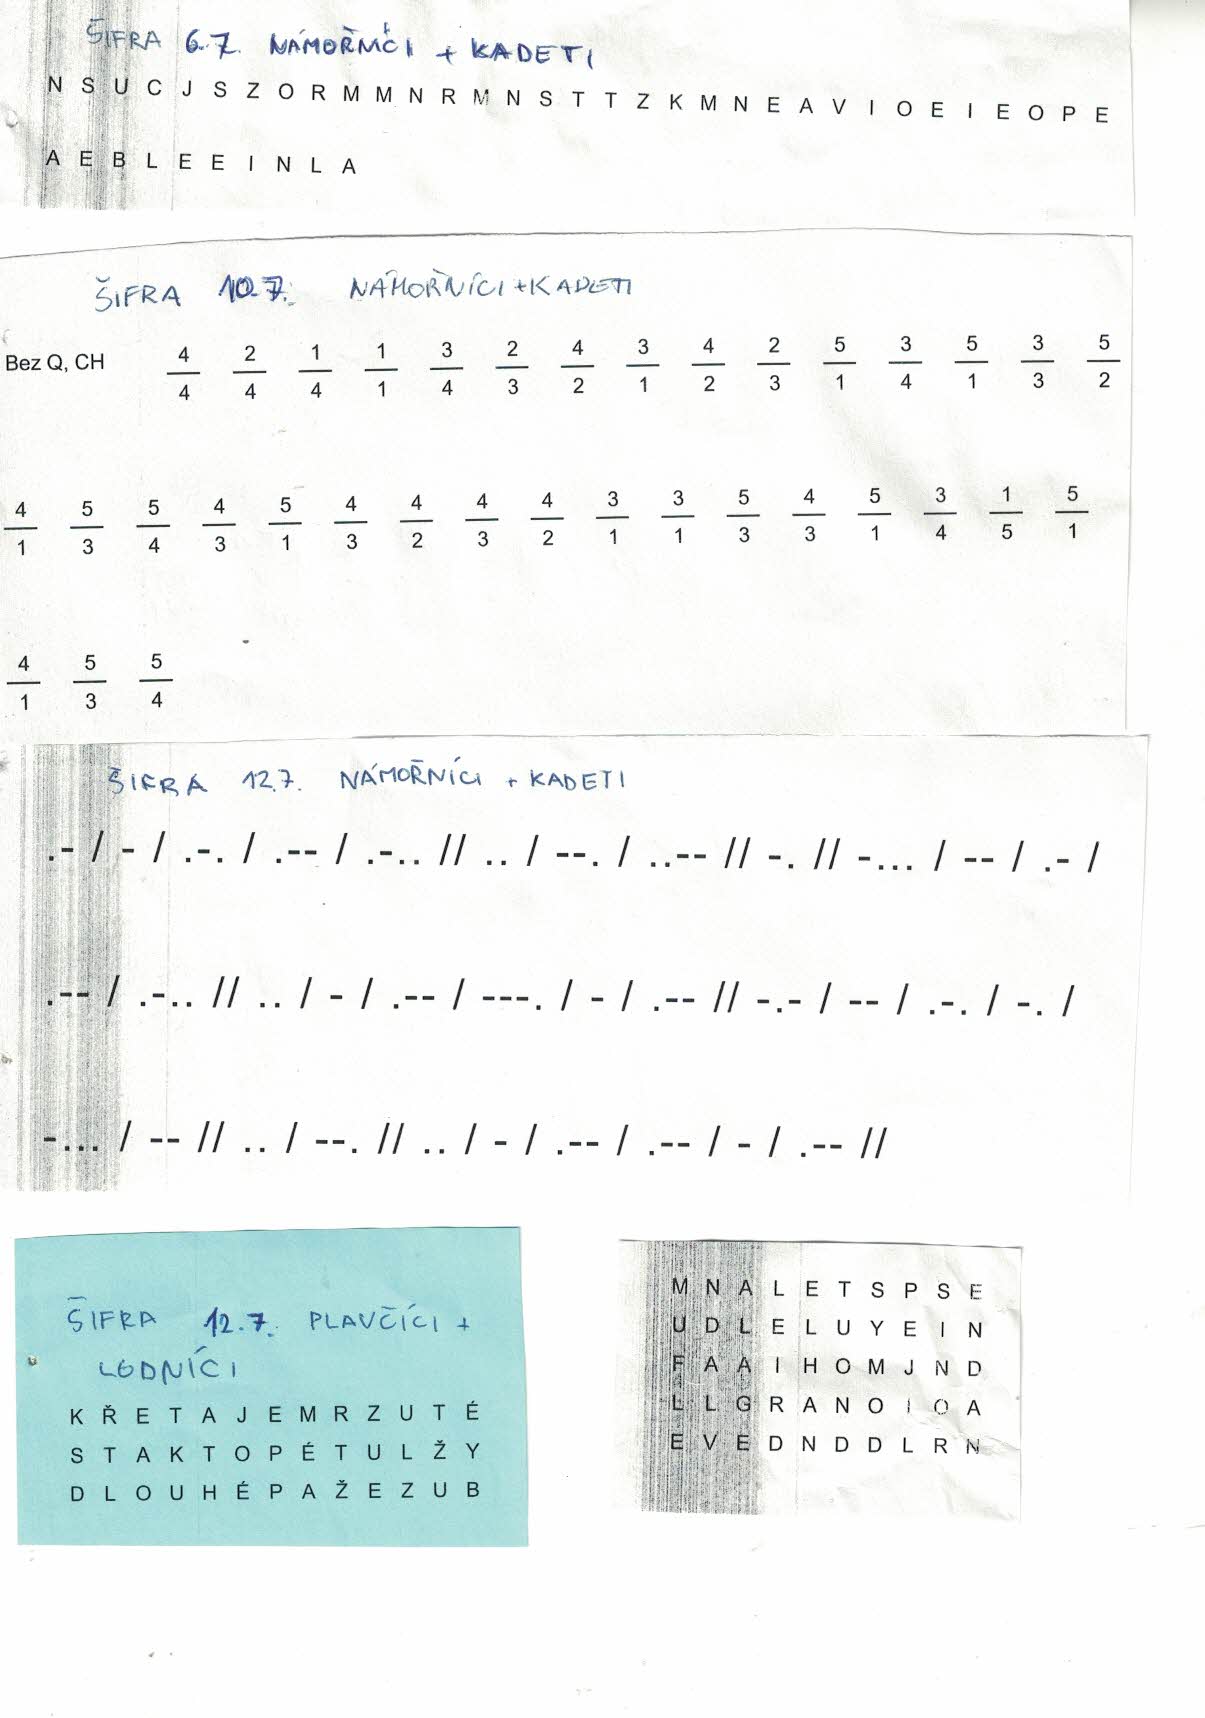 ŠIFRA 6.7. NÁMOŘNÍCI + KADETI
N S U C J S Z O R M M N R M N S T T Z K M N E A V I O E I E O P E
A E B L E E I N L A
ŠIFRA 10.7. NÁMOŘNÍCI + KADETI
Bez Q, CH 4/4 2/4 1/4 1/1 3/4 2/3 4/2 3/1 4/2 2/3 5/1 3/4 5/1 3/3 5/2
4/1 5/3 5/4 4/3 5/1 4/3 4/2 4/3 4/2 3/1 3/1 5/3 4/3 5/1 3/4 1/5 5/1
4/1 5/3 5/4
ŠIFRA 12.7. NÁMOŘNÍCI + KADETI
.- / - / .-. / .-- / .-.. // .. / --. / ..-- // -. // -... / -- / .- /
.-- / .-.. // .. / - / .-- / ---. / - / .-- // -.- / -- / .-. / -. /
-... / -- // .. / --. // .. / - / .-- / .-- / - / .-- //
ŠIFRA 12.7. PLAVČÍCI +
LODNÍCI
K Ř E T A J E M R Z U T É
S T A K T O P É T U L Ž Y
D L O U H É P A Ž E Z U B
M N A L E T S P S E
U D L E L U Y E I N
F A A I H O M J N D
L L G R A N O I O A
E V E D N D D L R N